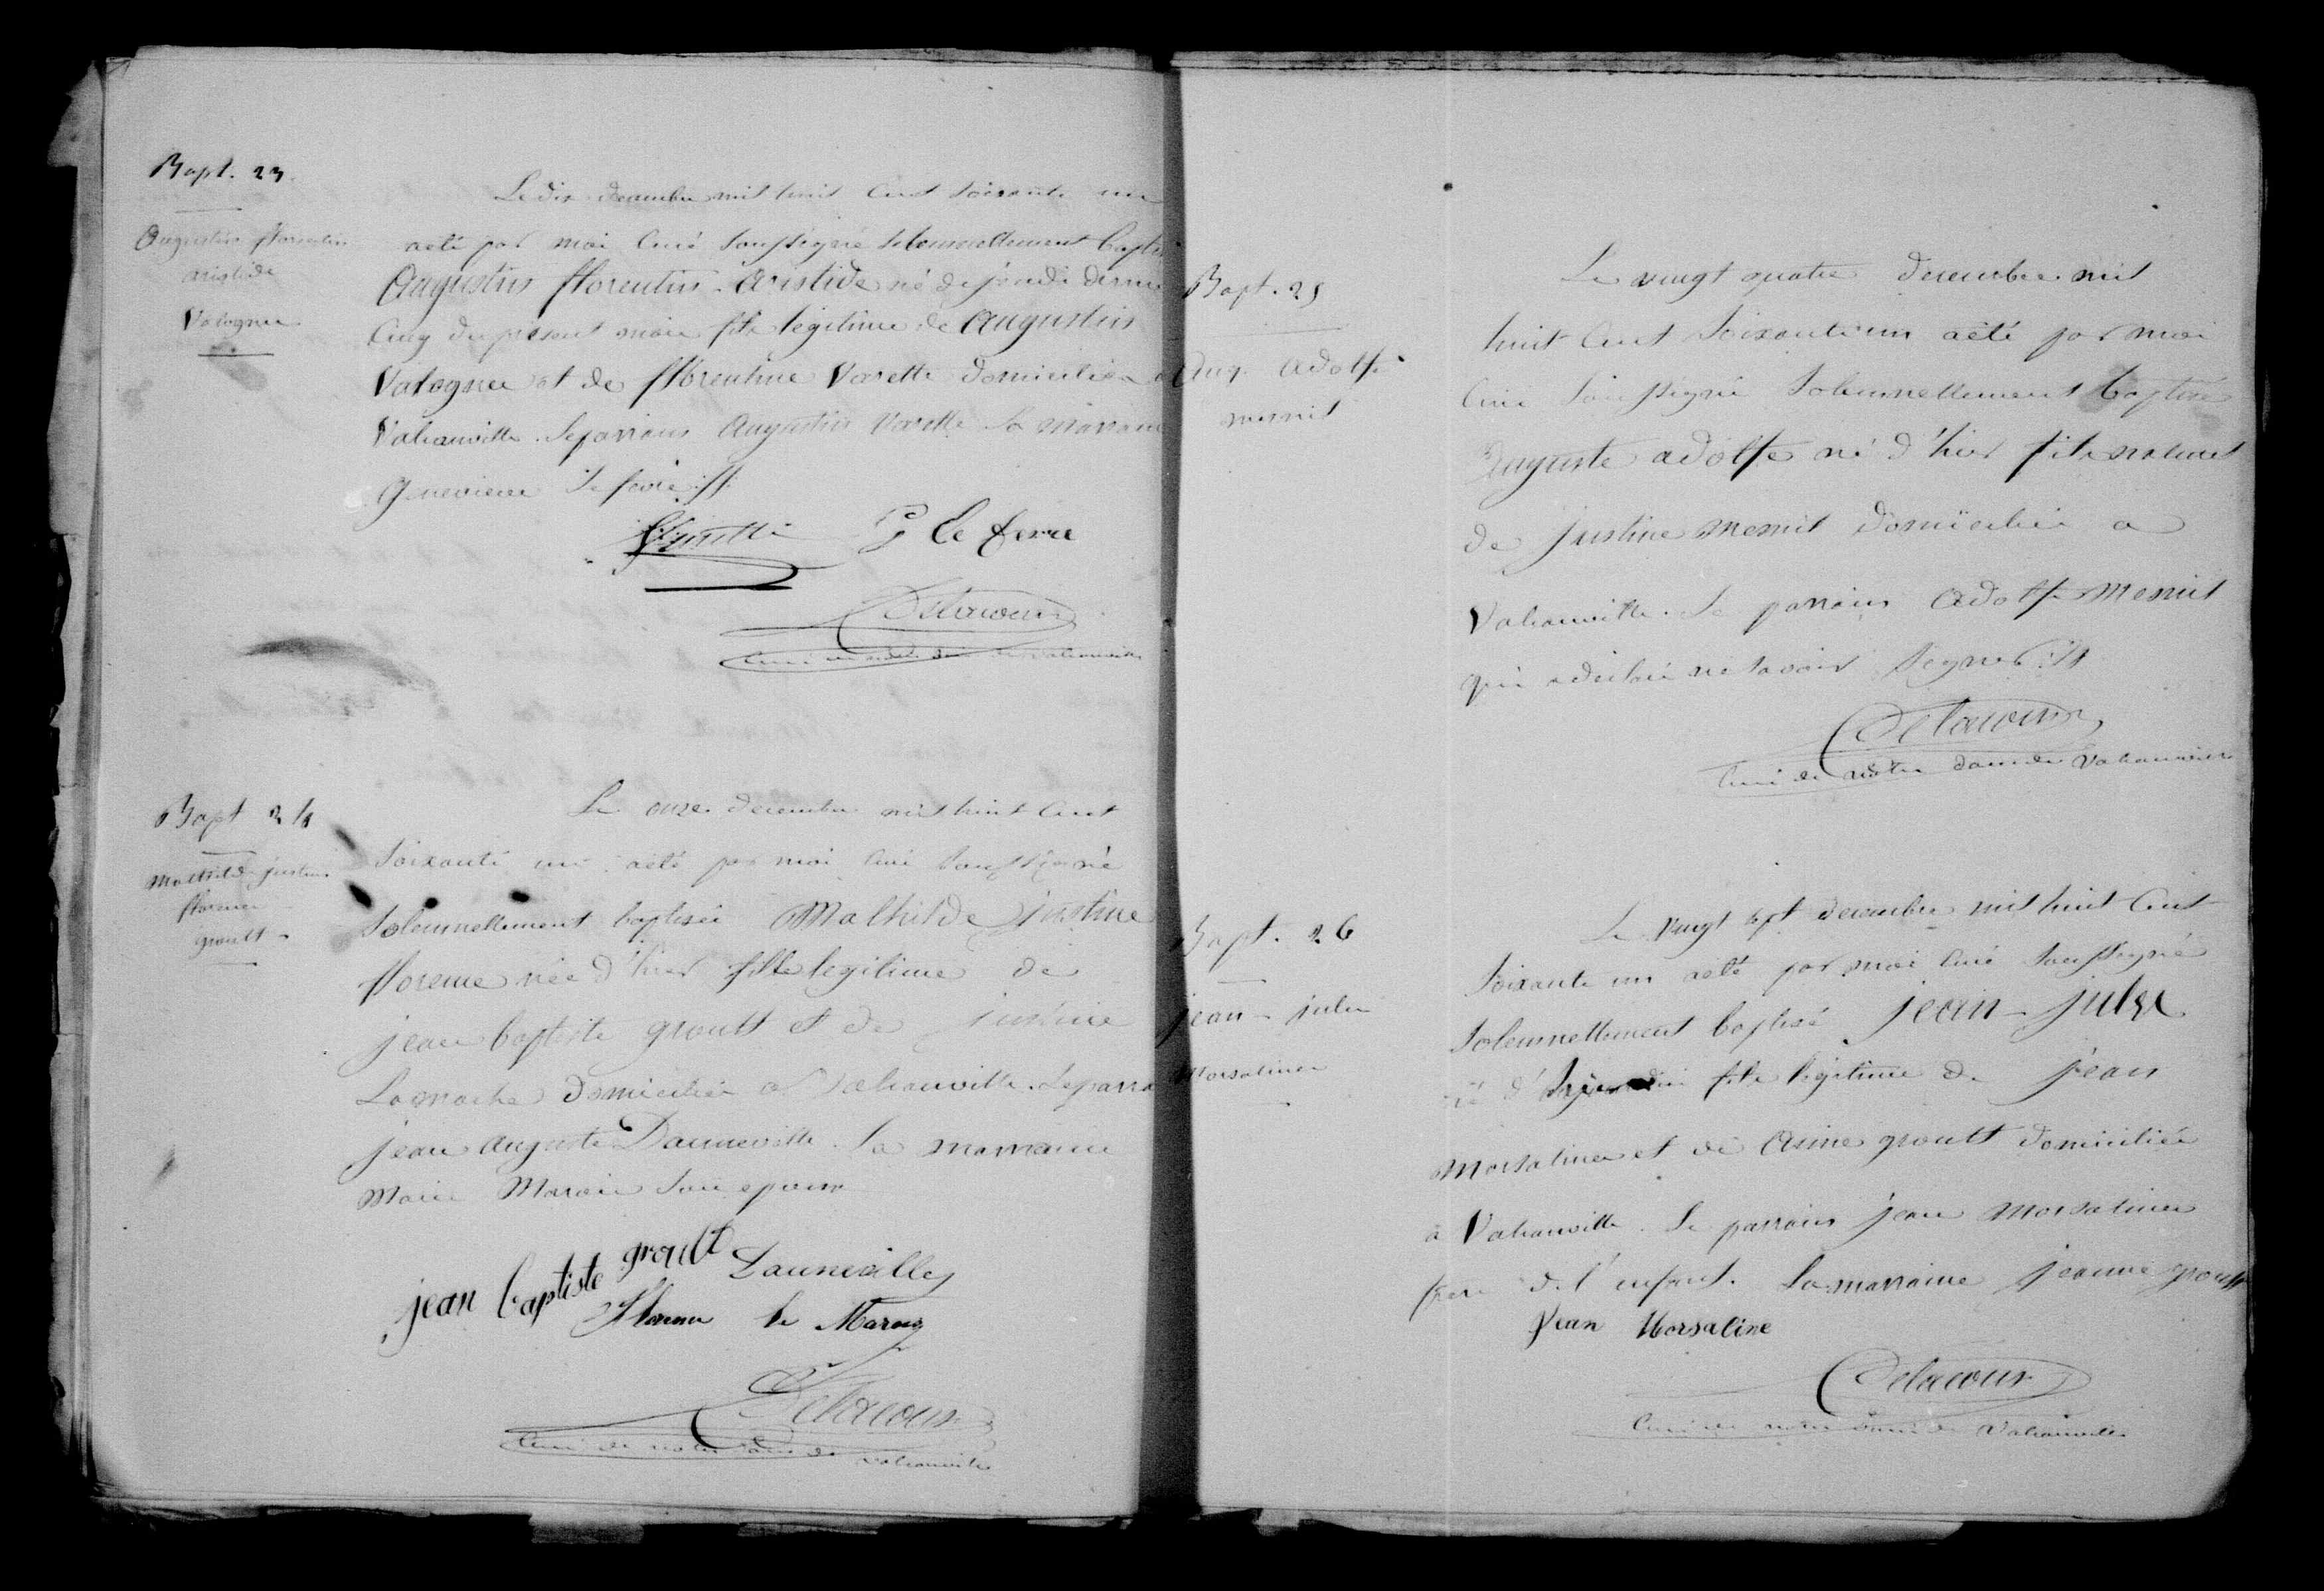 Bapt. 23
Augustin florentin
aristide
Valognes
Le dix decembre mil huit cent soixante un
a été par moi curé soussigné solennellement baptisé
Augustin florentin Aristide né de jeudi dernier
cinq du présent mois fils légitime de Augustin
Valognes et de florentine Varette domiciliés à
Valcanville. Le parrain Augustin Varette la marraine
Genevieve Le fevre ff.
G Le fevre
Delacour
Curé de notre dame de Valcanville
Bapt 24
Mathilde justine
florence
groult
Le onze decembre mil huit cent
soixante un a été par moi curé soussigné
solennellement baptisée Mathilde justine
florence née d'hier fille legitime de
jean baptiste groult et de justine
Lamache domiciliés a Valcanville. Le parrain
jean auguste Danneville. La marraine
Marie son epouse
jean baptiste groult Danneville
le Marois
Delacour
Curé de notre dame de Valcanville
Bapt. 25
Aug. Adolfe
mesnil
Le vingt quatre decembre mil
huit cent soixante un a été par moi
curé soussigné solennellement baptisé
Auguste adolfe né d'hier fils naturel
de justine mesnil domiciliée a
Valcanville. Le parrain Adolfe Mesnil
qui a déclaré ne savoir signer ff
Delacour
Curé de notre dame de Valcanville
Bapt. 26
jean - jules
Morsalines
Le vingt sept decembre mil huit cent
soixante un a été par moi curé soussigné
solennellement baptisé jean - jules
né d' fils légitime de jean
Morsalines et de groult domiciliés
à Valcanville. Le parrain jean Morsalines
frere de l'enfant. La marraine jeanne groult
Jean Morsaline
Delacour
Curé de notre dame de Valcanville